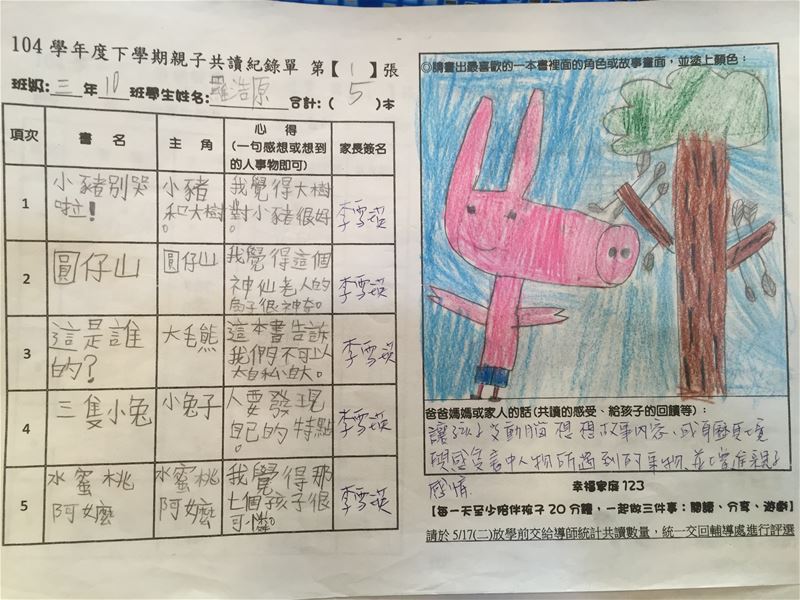 104 學年度下學期親子共讀紀錄單 第【1】張
班級:三年10班學生姓名:羅浩原 合計:(5)本
項次 書名 主角 心得(一句感想或想到的人事物即可) 家長簽名
1 小豬別哭啦! 小豬和大樹。 我覺得大樹對小豬很好。 李雪瑛
2 圓仔山 圓仔山 我覺得這個神仙老人的扇子很神奇。 李雪瑛
3 這是誰的? 大毛熊 這本書告訴我們不可以太自私自大。 李雪瑛
4 三隻小兔 小兔子 人要發現自己的特點。 李雪瑛
5 水蜜桃阿嬤 水蜜桃阿嬤 我覺得那七個孩子很可憐。 李雪瑛
◎請畫出最喜歡的一本書裡面的角色或故事畫面,並塗上顏色:
爸爸媽媽或家人的話(共讀的感受、給孩子的回饋等):
讓孩子多動腦想想故事內容,或身歷其境
感受書中人物所遇到的事物,並增進親子
感情
幸福家庭 123
【每一天至少陪伴孩子 20 分鐘,一起做三件事:閱讀、分享、遊戲】
請於 5/17(二)放學前交給導師統計共讀數量,統一交回輔導處進行評選